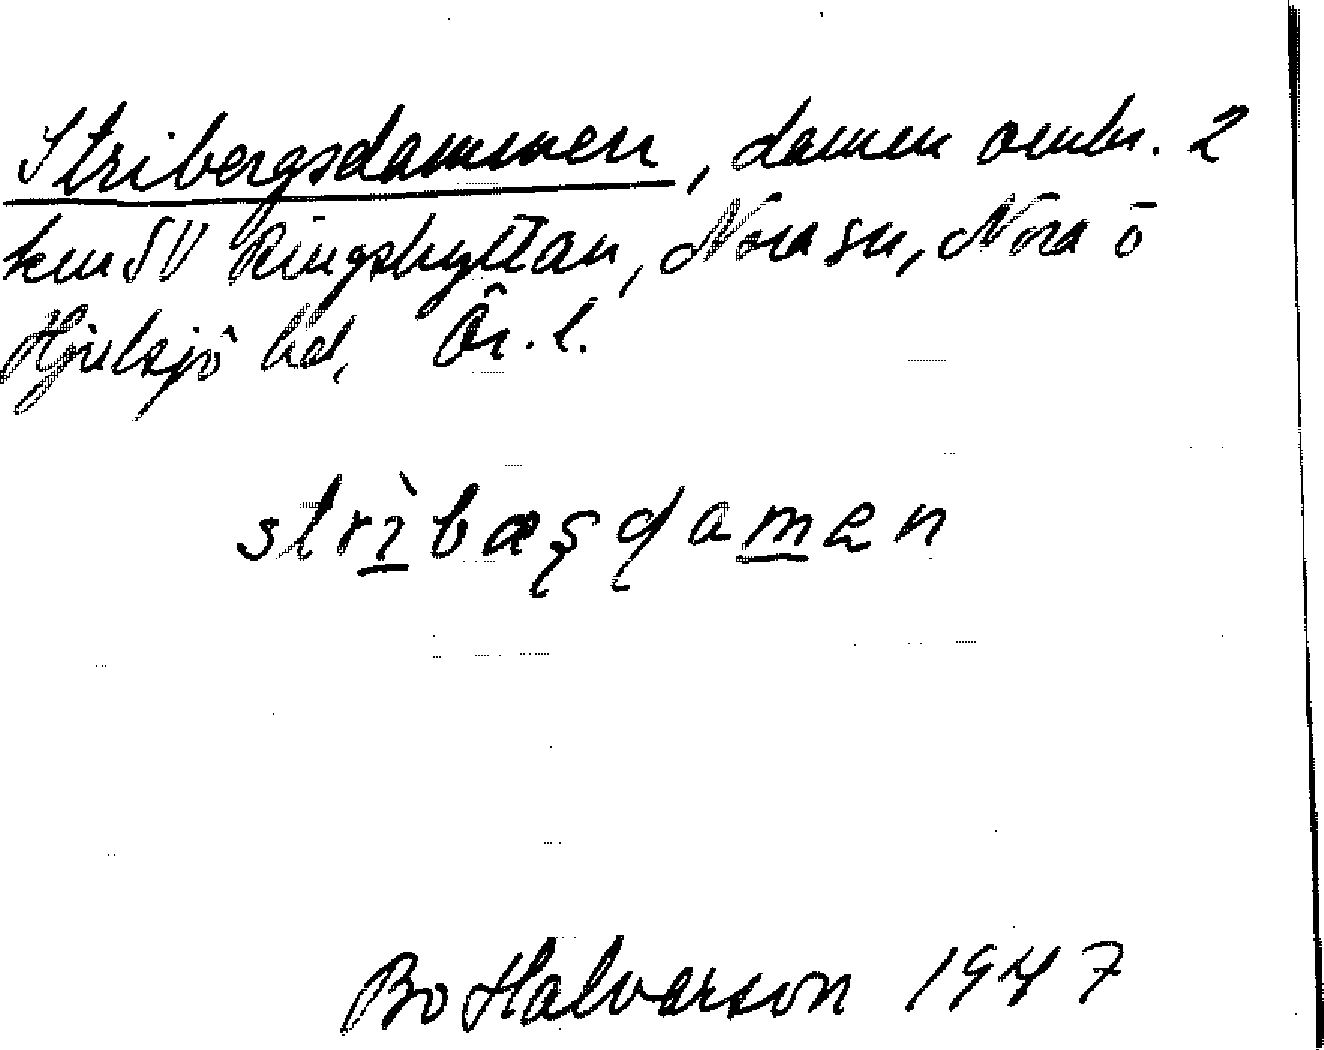 Stribergsdammen, dammen ombr. 2
km SV Ringshyttan, Nora sn, Nora o
Hjulsjö bd, Ör. l.
strìbæʂɖamen
Bo Halvarson 1947